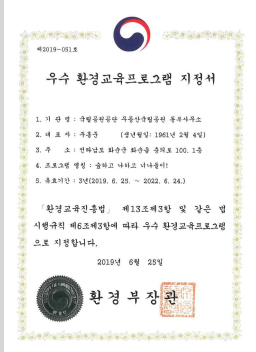 제2019-051호
우수 환경교육프로그램 지정서
1. 기 관 명 : 국립공원공단 무등산국립공원 동부사무소
2. 대 표 자 : 주홍준 (생년월일: 1961년 2월 4일)
3. 주 소 : 전라남도 화순군 화순읍 충의로 100, 1층
4. 프로그램 명칭 : 숲하고 나하고 너나들이!
5. 유효기간 : 3년(2019. 6. 25. ~ 2022. 6. 24.)
「환경교육진흥법」 제13조제3항 및 같은 법
시행규칙 제6조제3항에 따라 우수 환경교육프로그램
으로 지정합니다.
2019년 6월 25일
환경부장관